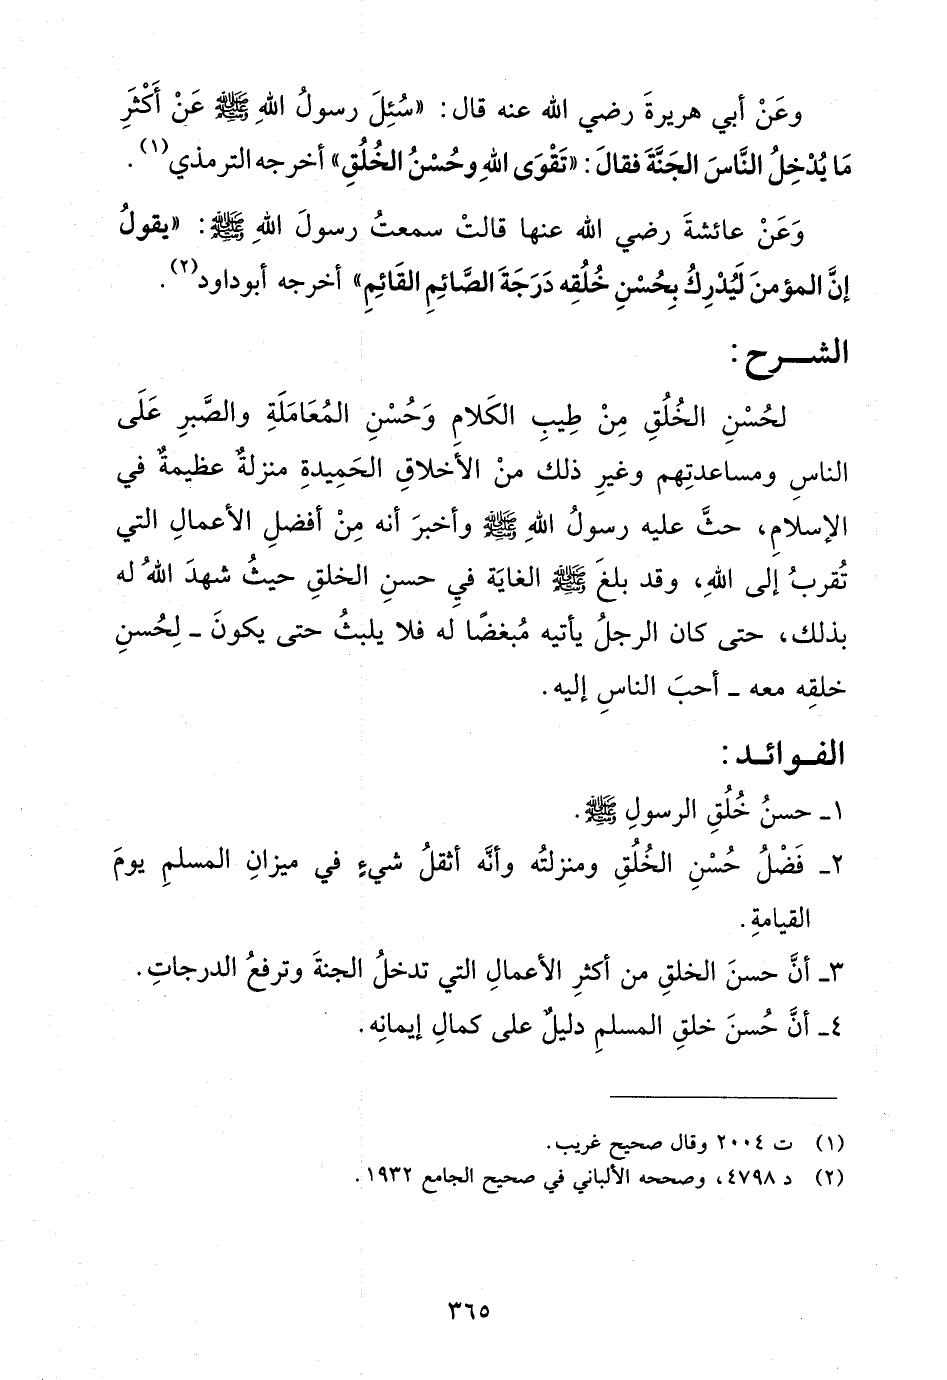 وعَنْ أبي هريرةَ رضي الله عنه قال: «سُئِلَ رسولُ اللهِ ﷺ عَنْ أَكْثَرِ
مَا يُدْخِلُ النَّاسَ الجَنَّةَ فقالَ: «تَقْوَى اللهِ وحُسْنُ الخُلُقِ» أخرجه الترمذي(١).
وَعَنْ عائشةَ رضي الله عنها قالتْ سمعتُ رسولَ اللهِ ﷺ: «يقولُ
إنَّ المؤمنَ لَيُدْرِكُ بِحُسْنِ خُلُقِه دَرَجَةَ الصَّائِمِ القَائِمِ» أخرجه أبوداود(٢).
الشـــرح:
لحُسْنِ الخُلُقِ مِنْ طِيبِ الكَلامِ وَحُسْنِ المُعَامَلَةِ والصَّبرِ عَلَى
الناسِ ومساعدتِهم وغيرِ ذلك منْ الأَخلاقِ الحَمِيدةِ منزلةٌ عظيمةٌ في
الإسلامِ، حثَّ عليه رسولُ اللهِ ﷺ وأخبرَ أنه مِنْ أفضلِ الأعمالِ التي
تُقربُ إلى اللهِ، وقد بلغَ ﷺ الغايَة في حسنِ الخلقِ حيثُ شهدَ اللهُ له
بذلك، حتى كان الرجلُ يأتيه مُبغضًا له فلا يلبثُ حتى يكونَ ـ لِحُسنِ
خلقِه معه ـ أحبَ الناسِ إليه.
الفـوائـد:
١ـ حسنُ خُلُقِ الرسولِ ﷺ.
٢ـ فَضْلُ حُسْنِ الخُلُقِ ومنزلتُه وأنَّه أثقلُ شيءٍ في ميزانِ المسلمِ يومَ
القيامةِ.
٣ـ أنَّ حسنَ الخلقِ من أكثرِ الأعمالِ التي تدخلُ الجنةَ وترفعُ الدرجاتِ.
٤ـ أنَّ حُسنَ خلقِ المسلمِ دليلٌ على كمالِ إيمانِه.
(١) ت ٢٠٠٤ وقال صحيح غريب.
(٢) د ٤٧٩٨، وصححه الألباني في صحيح الجامع ١٩٣٢.
٣٦٥